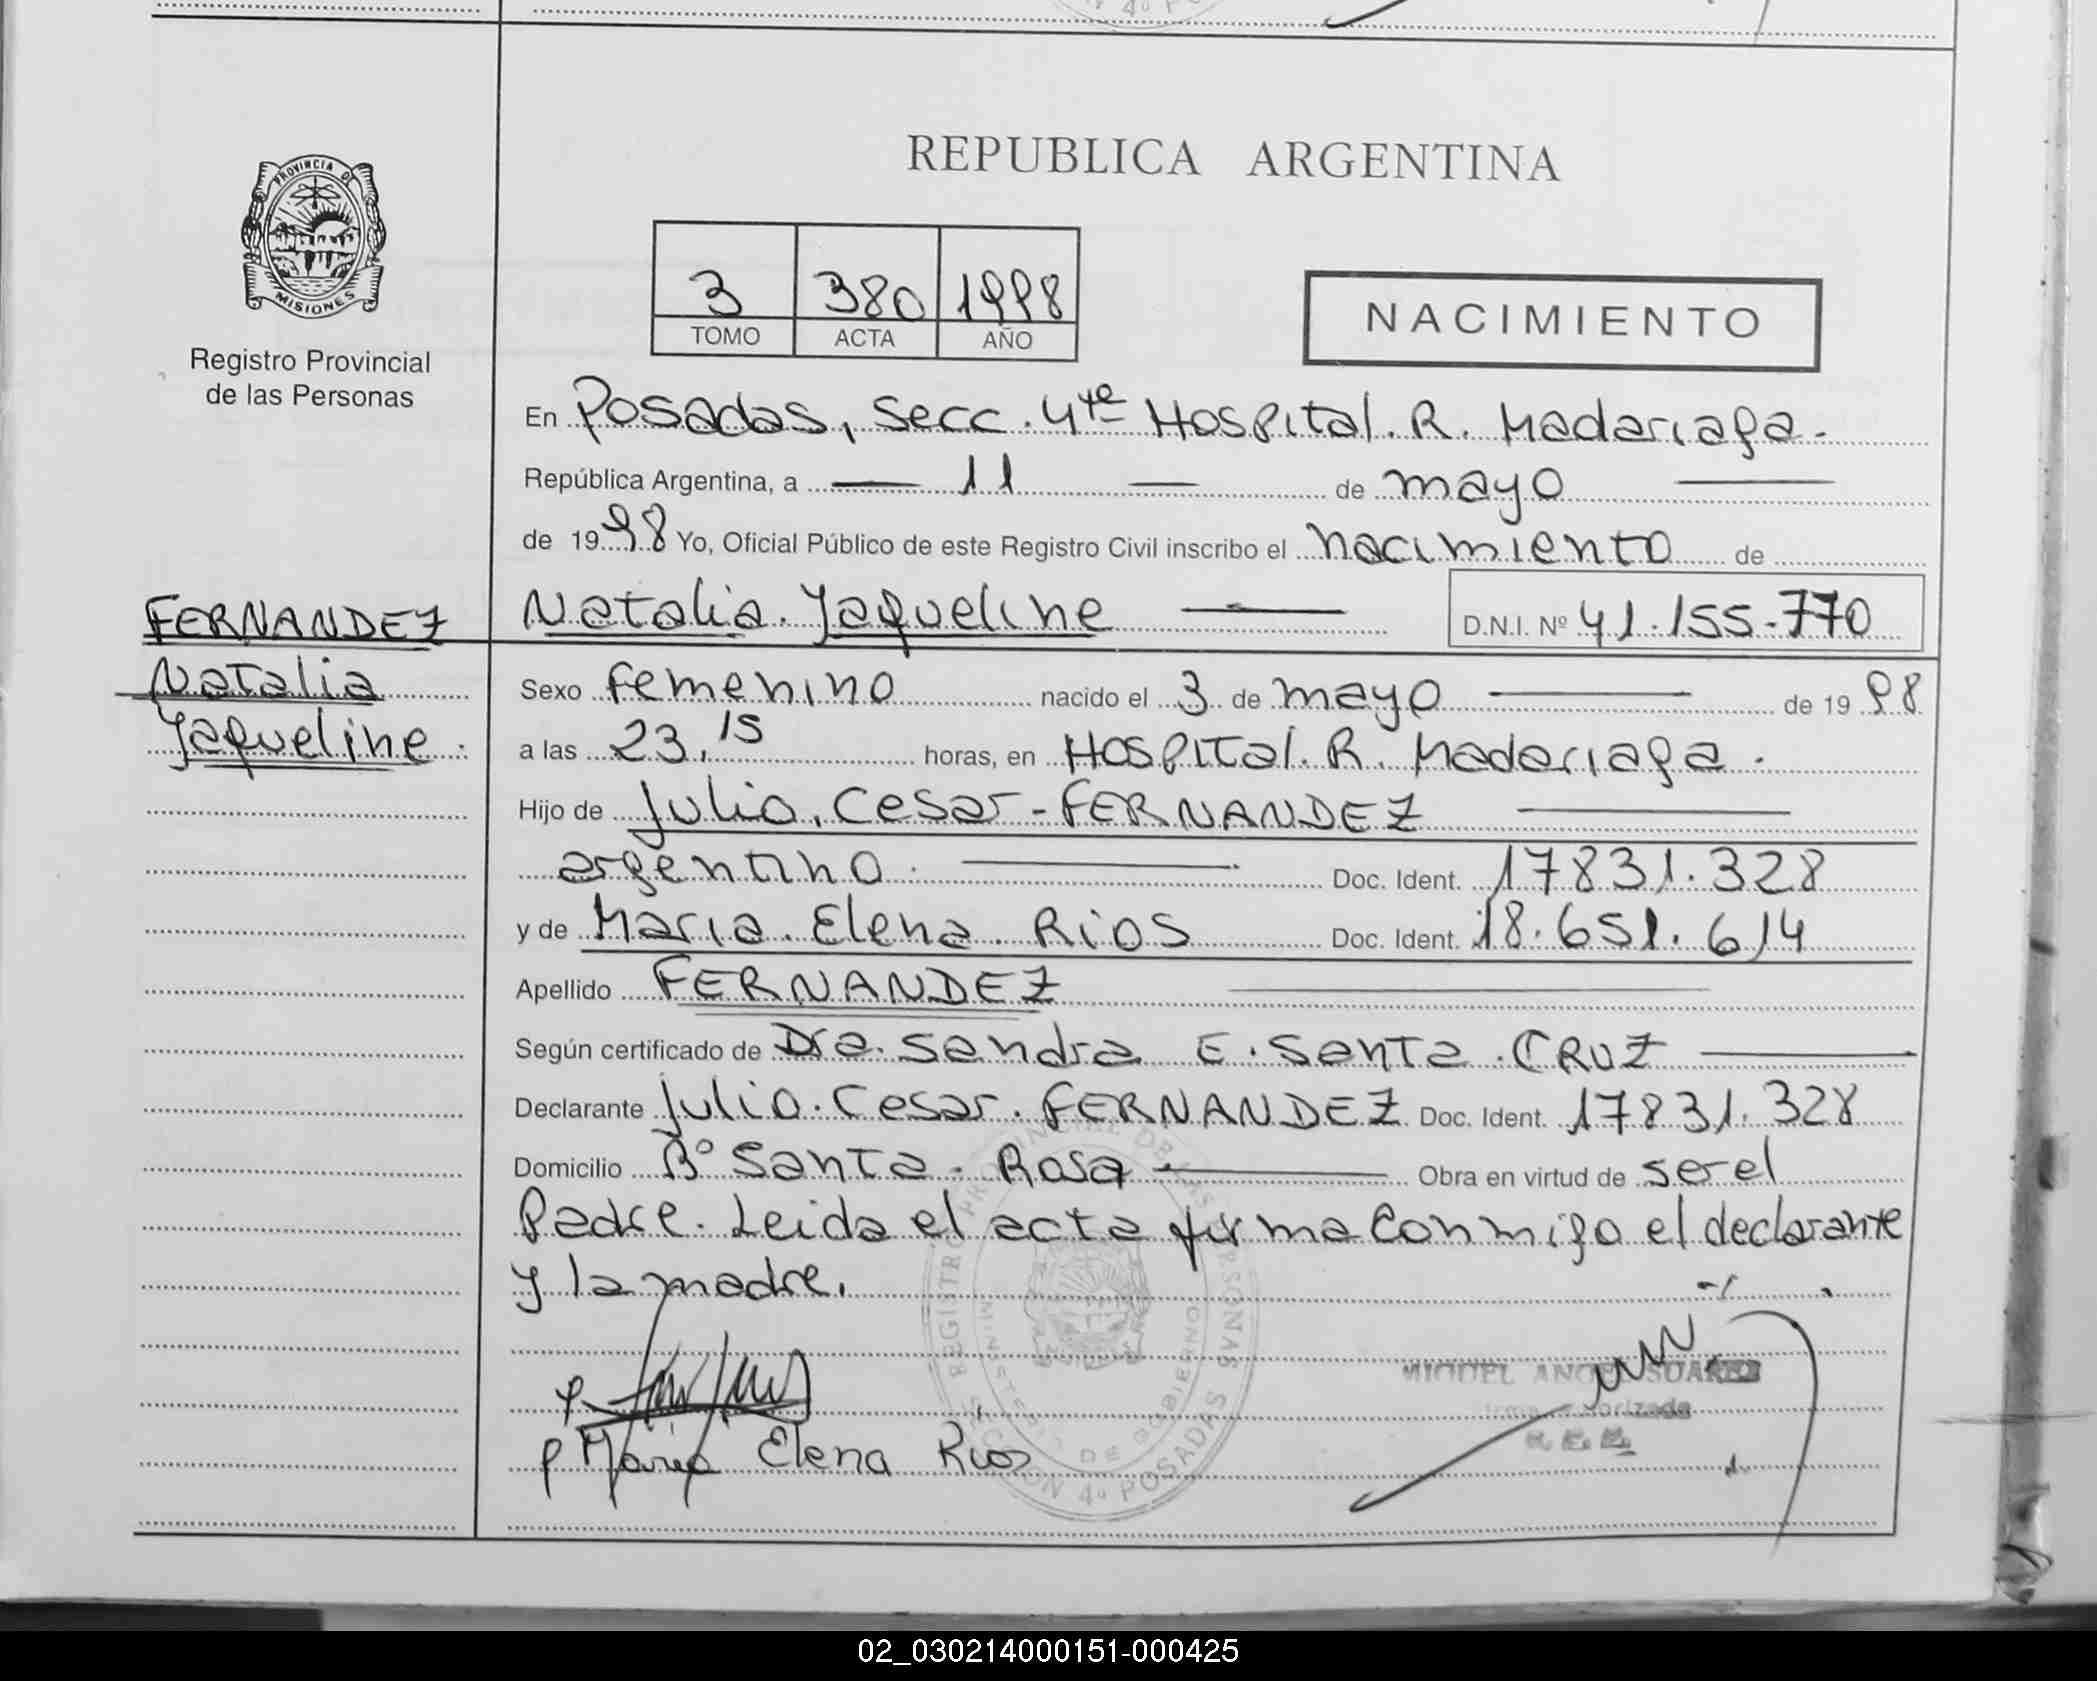 REPUBLICA ARGENTINA
PROVINCIA DE
MISIONES
Registro Provincial
de las Personas
3 380 1998
TOMO ACTA AÑO
NACIMIENTO
En Posadas, Secc. 4ta Hospital. R. Madariaga.
República Argentina, a — 11 — de mayo —
de 1998 Yo, Oficial Público de este Registro Civil inscribo el nacimiento de
FERNANDEZ
Natalia
Jaqueline.
Natalia. Jaqueline — D.N.I. Nº 41.155.770
Sexo femenino nacido el 3 de mayo — de 1998
a las 23,15 horas, en Hospital. R. Madariaga.
Hijo de Julio. Cesar - FERNANDEZ —
argentino. — Doc. Ident. 17831.328
y de Maria. Elena. Rios Doc. Ident. 18.651.614
Apellido FERNANDEZ —
Según certificado de Dra. Sandra E. Santa. CRUZ —
Declarante Julio. Cesar. FERNANDEZ Doc. Ident. 17831.328
Domicilio Bº Santa. Rosa — Obra en virtud de ser el
Padre. Leida el acta firma conmigo el declarante
y la madre.
MIGUEL ANGEL SUAREZ
Firma Autorizada
p Maria Elena Rios
REGISTRO PROVINCIAL DE LAS PERSONAS
MINISTERIO DE GOBIERNO
SECCION 4ª POSADAS
02_030214000151-000425